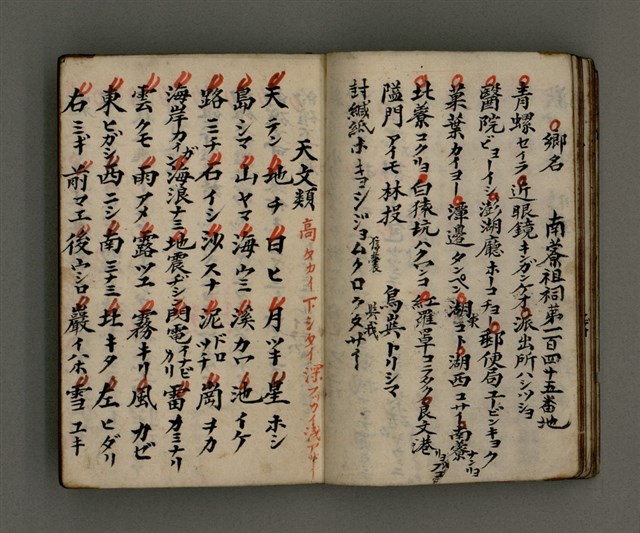 鄉名　南藔祖祠第一百四十五番地
青螺セイラ近眼鏡キンガンケオ派出所ハシツショ
醫院ビョーイン澎湖廳ホーコチョ郵便局ユービンキョク
菜葉カイヨー潭邊タンペン湖東コト湖西コサイ南藔ナンリョ
北藔コクリョ白猿坑ハクワンコ紅羅罩コラタク良文港リョブンコ
隘門アイモ林投　烏崁トリシマ
討緘紙ホキョシジョムクロウタサイ
天文類　高タカイ下シタイ深フカイ浅アサ
天テン地チ日ヒ月ツキ星ホシ
島シマ山ヤマ海ウミ溪カワ池イケ
路ミチ石イシ沙スナ泥ドロツチ崗オカ
海岸カイガン海浪ナミ地震ヂシン閃電イナビカリ雷カミナリ
雲クモ雨アメ露ツエ霧キリ風カゼ
東ヒガシ西ニシ南ミナミ北キタ左ヒダリ
右ミギ前マエ後ウシロ巖イハホ雪ユキ